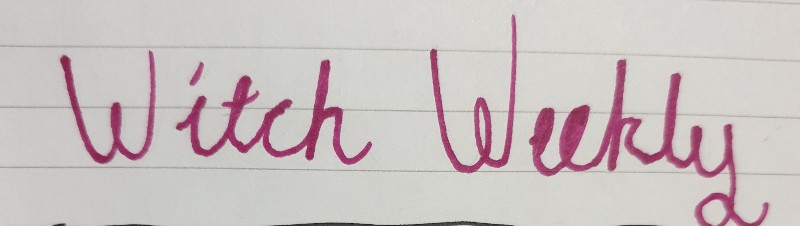 Witch Weekly